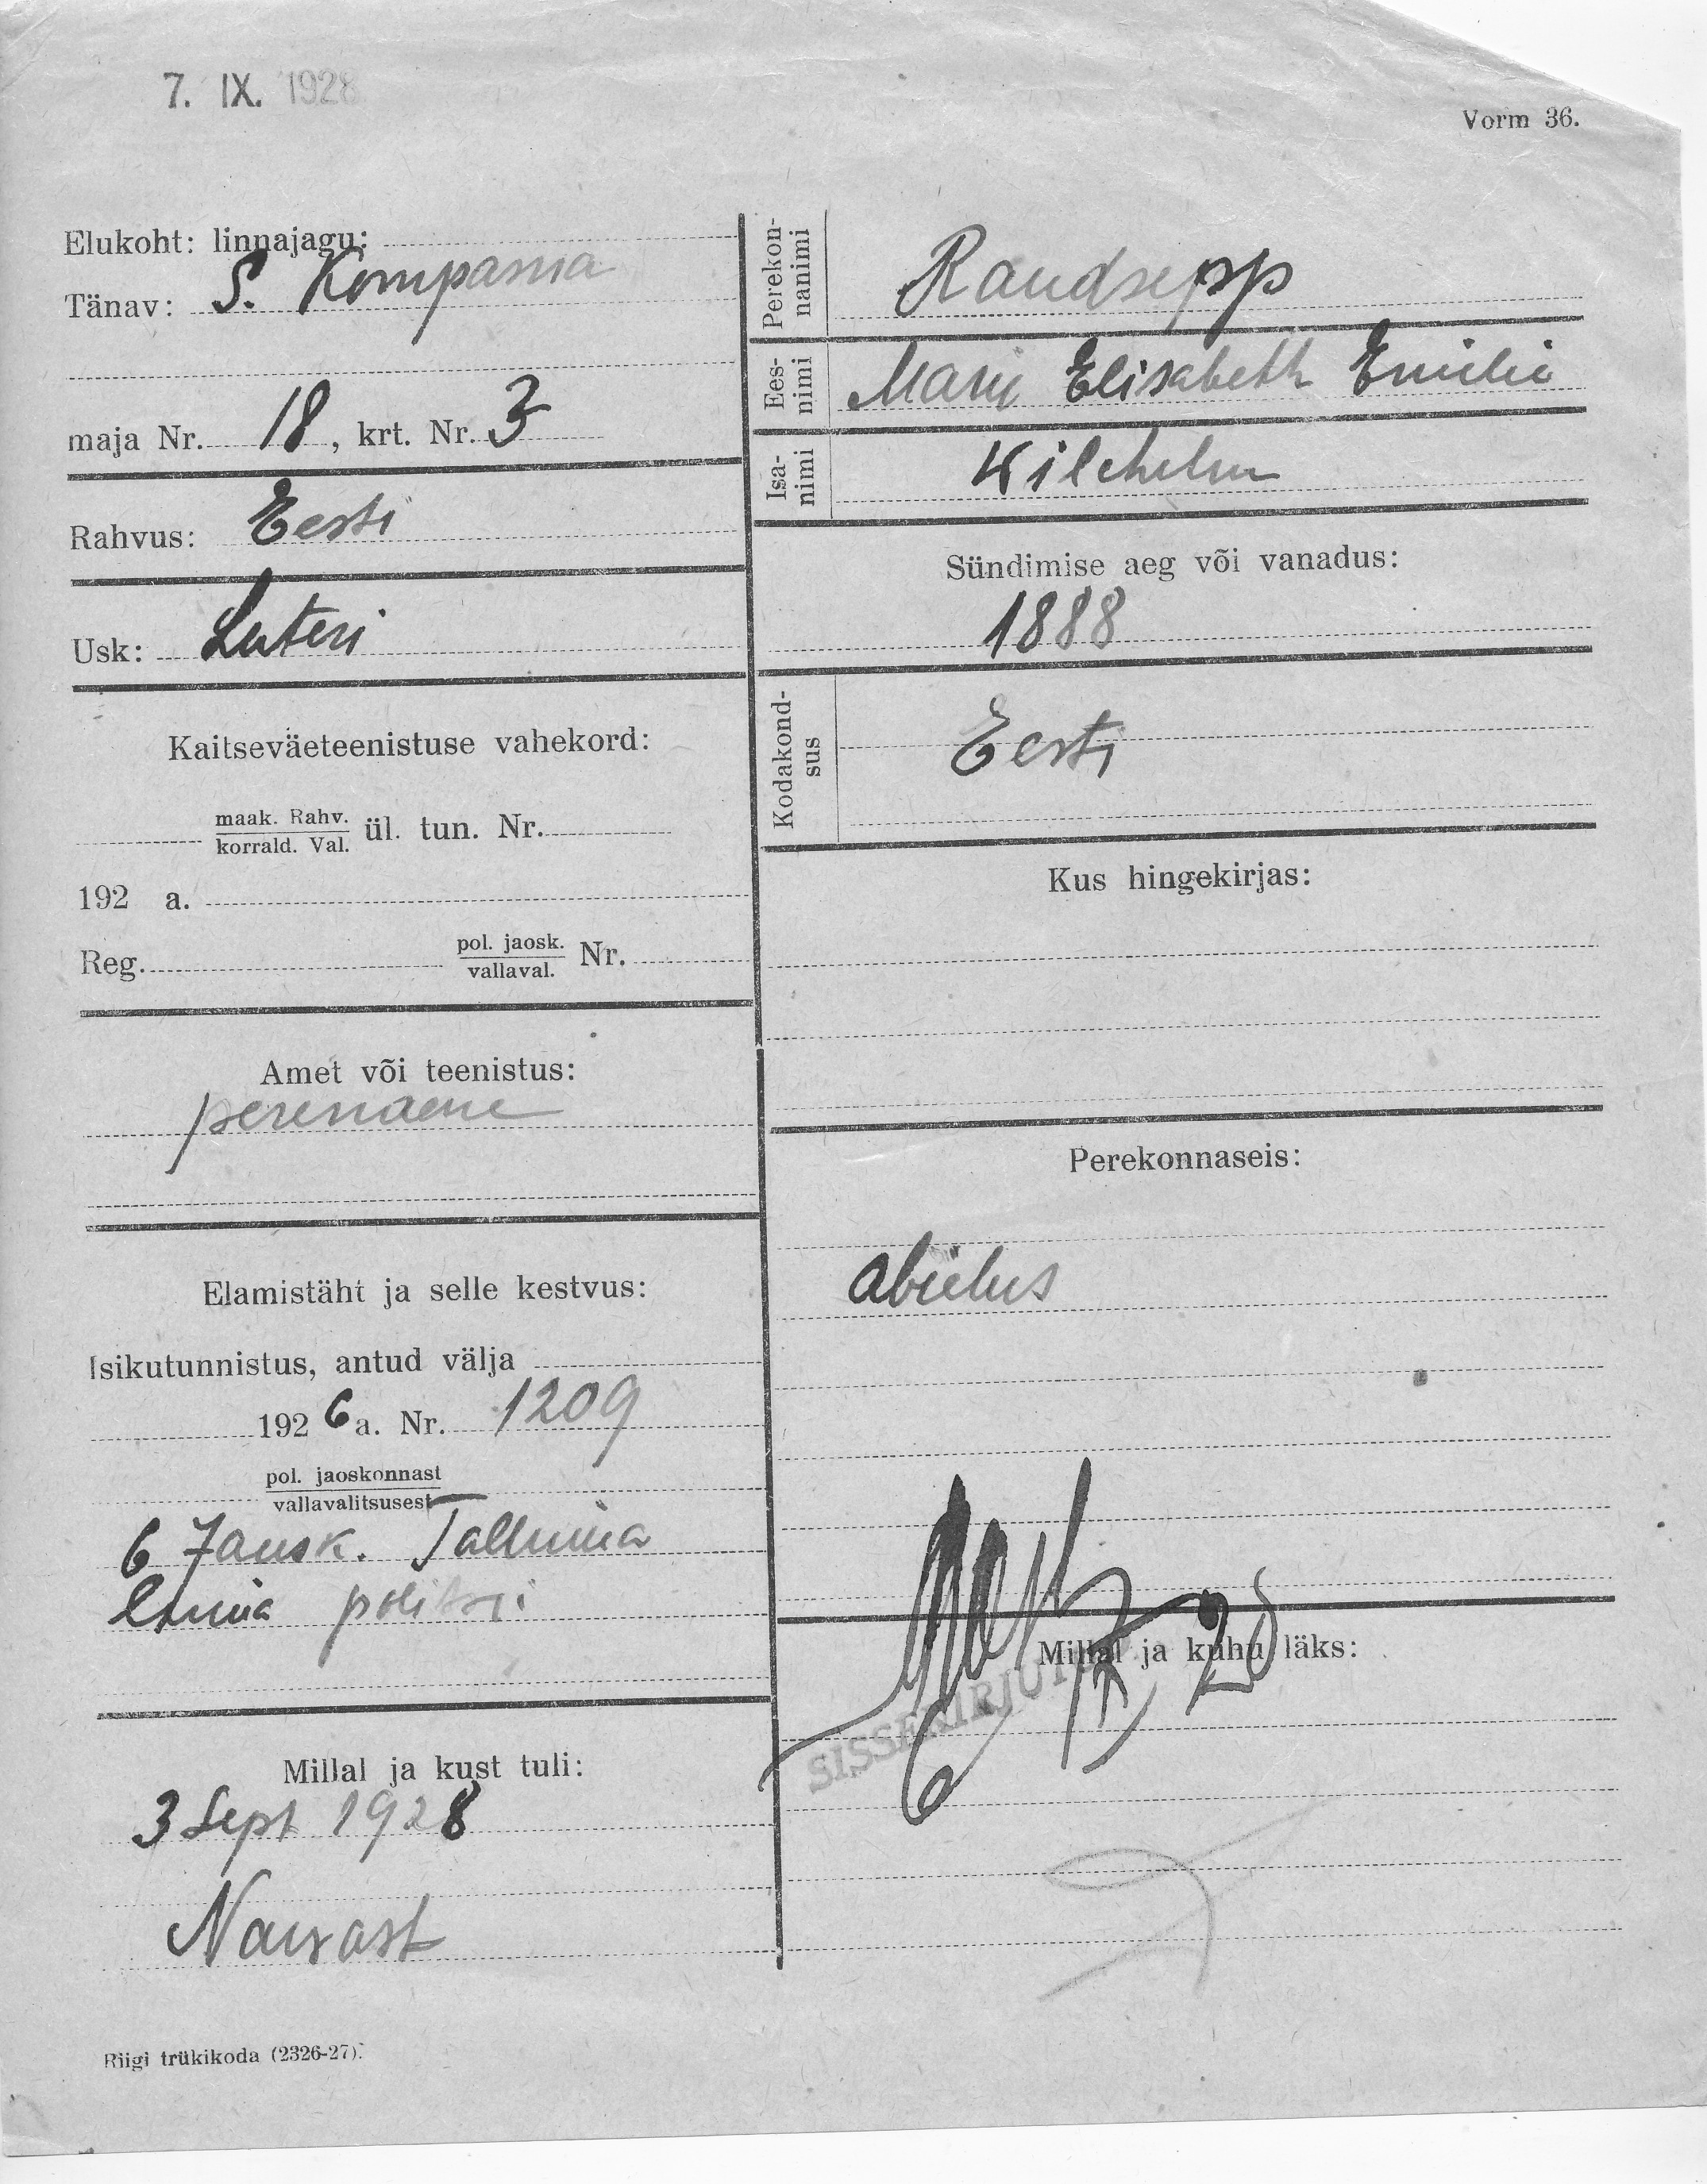 7. IX. 1928
Vorm 36.
Elukoht: linnajagu:
Tänav: S. Kompania
maja Nr. 18, krt. Nr. 3
Rahvus: Eesti
Usk: Luteri
Kaitseväeteenistuse vahekord:
maak. Rahv.
korrald. Val.
ül. tun. Nr.
192 a.
Reg. pol. jaosk.
vallaval. Nr.
Amet või teenistus:
perenaene
Elamistäht ja selle kestvus:
Isikutunnistus, antud välja
1926 a. Nr. 1209
pol. jaoskonnast
vallavalitsusest
6 Jausk. Tallinna
Linna politsei
Millal ja kust tuli:
3 Sept 1928
Narvast
Riigi trükikoda (2326-27).
Perekon-
nanimi
Raudsepp
Ees-
nimi
Marij Elisabeth Emilie
Isa-
nimi
Wilchelm
Sündimise aeg või vanadus:
1888
Kodakond-
sus
Eesti
Kus hingekirjas:
Perekonnaseis:
abielus
Millal ja kuhu läks:
SISSEKIRJUTUD